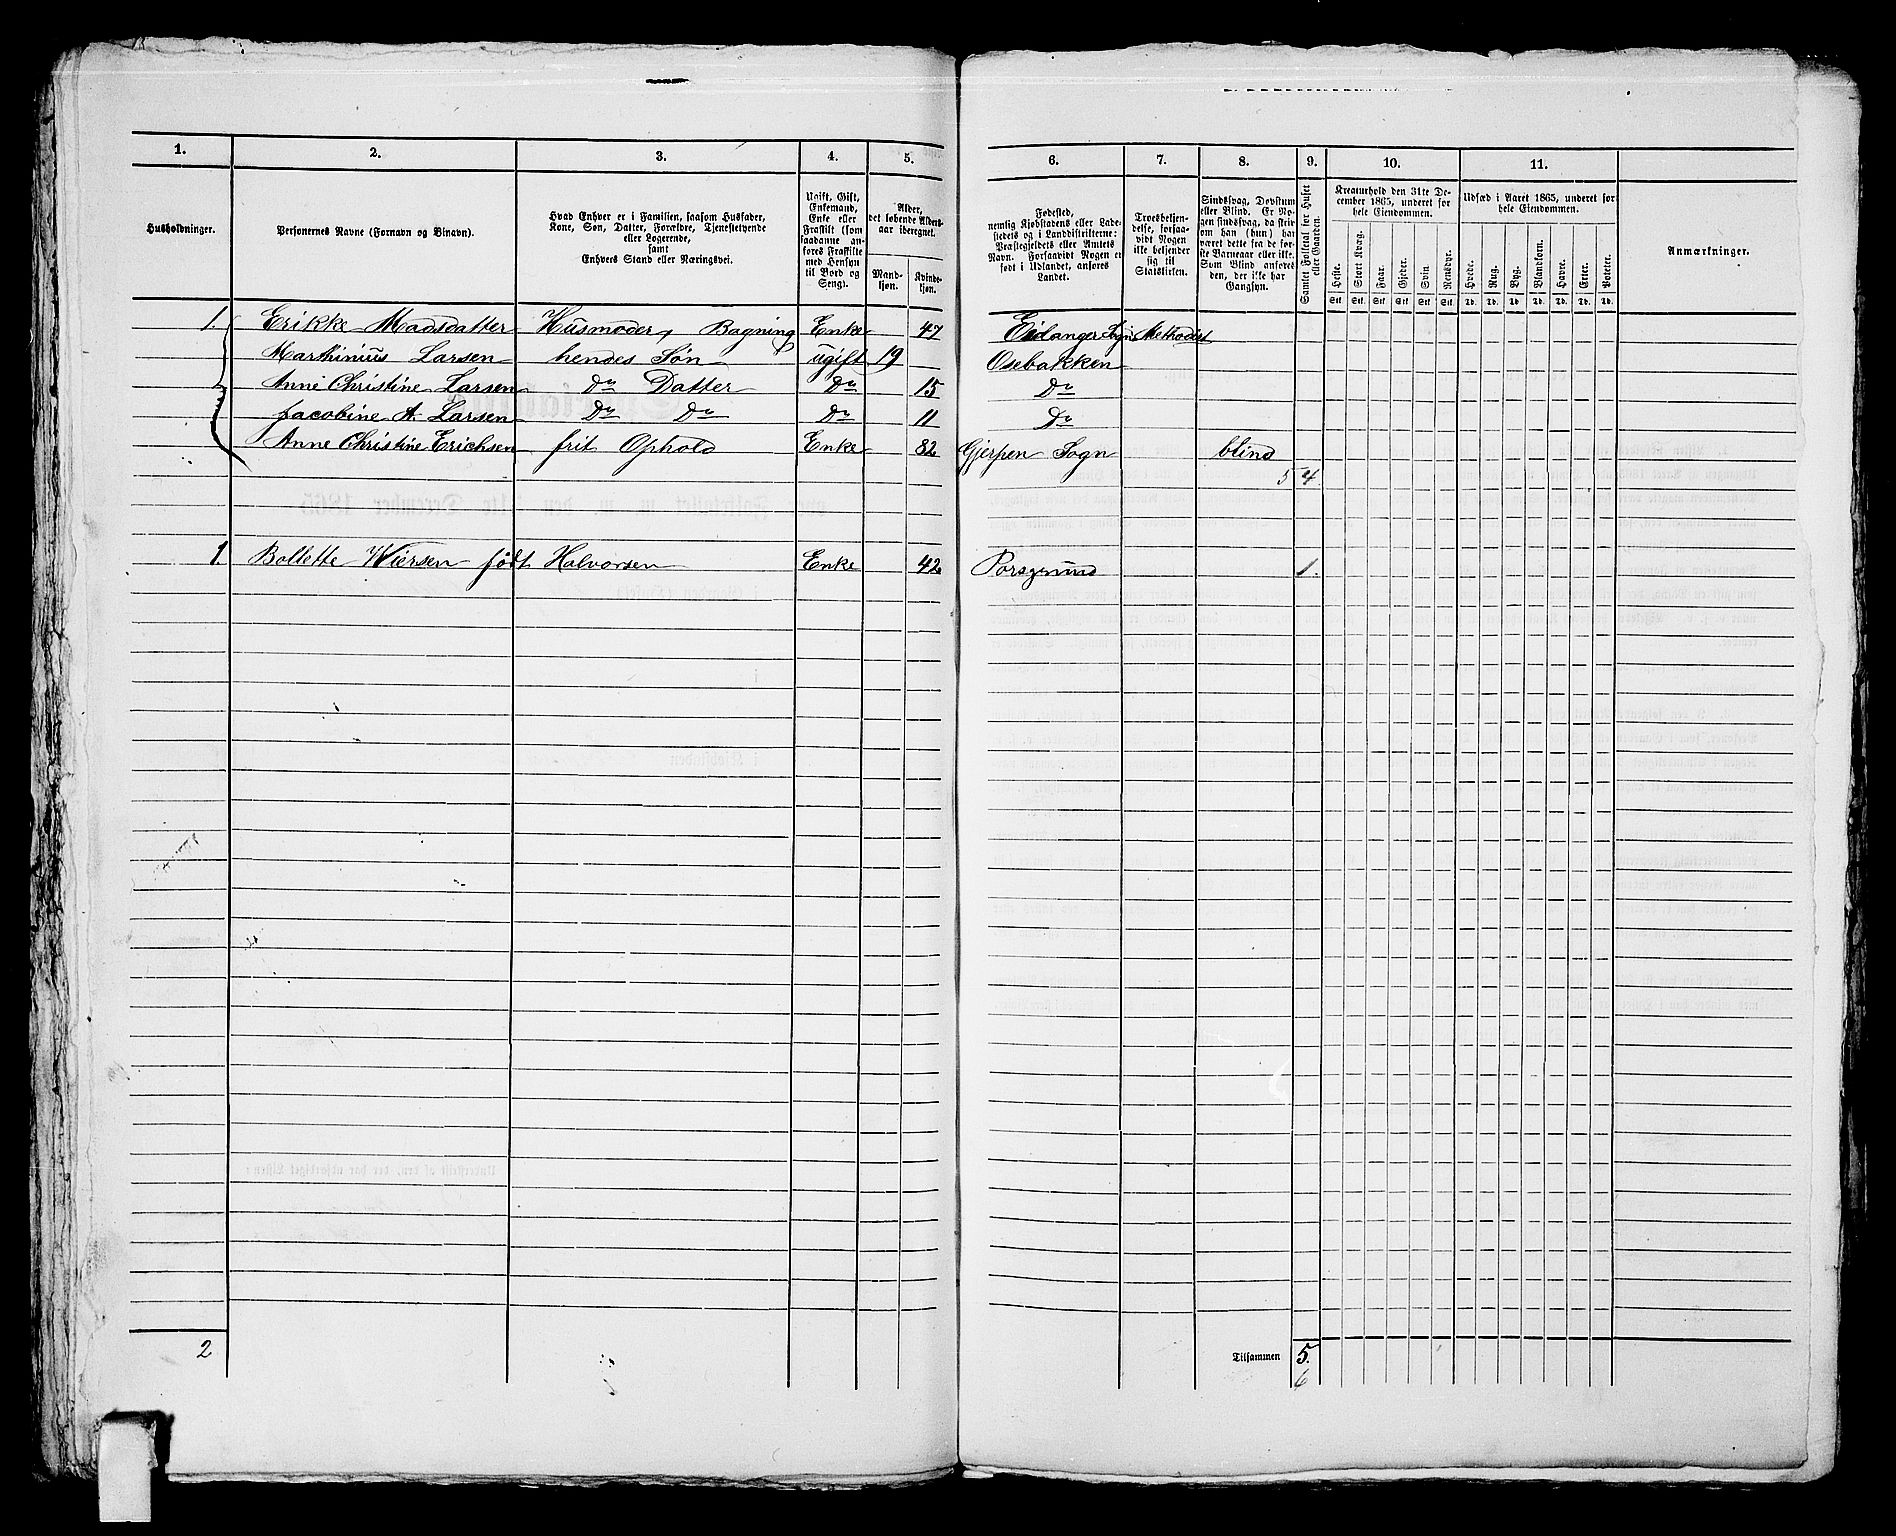 1. 2. 3. 4. 5. 6. 7. 8. 9. 10. 11.
Husholdninger.
Personernes Navne (Fornavn og Binavn).
Hvad Enhver er i Familien, saasom Husfader,
Kone, Søn, Datter, Forældre, Tjenestetyende
eller Logerende,
samt
Enhvers Stand eller Næringsvei.
Ugift, Gift,
Enkemand,
Enke eller
Fraskilt (som
saadanne an-
føres Fraskilte
med Hensyn
til Bord og
Seng).
Alder,
det løbende Alders-
aar iberegnet.
Mand-
kjøn.
Kvinde-
kjøn.
Fødested,
nemlig Kjøbstadens eller Lade-
stedets og i Landdistrikterne:
Præstegjeldets eller Amtets
Navn. Forsaavidt Nogen er
født i Udlandet, anføres
Landet.
Troesbekjen-
delse, forsaa-
vidt Nogen
ikke bekjender
sig til
Statskirken.
Sindssvag, Døvstum
eller Blind. Er No-
gen sindssvag, da skri-
ves om han (hun) har
været dette fra de før-
ste Barneaar eller ikke.
Som Blind anføres
den, der ikke har
Gangsyn.
Samlet Folketal for Huset
eller Gaarden.
Kreaturhold den 31te De-
cember 1865, underet for
hele Eiendommen.
Heste. Stort Kvæg. Faar. Gjeder. Svin. Rensdyr.
Stk. Stk. Stk. Stk. Stk. Stk.
Udsæd i Aaret 1865, underet for
hele Eiendommen.
Hvede. Rug. Byg. Blandkorn. Havre. Erter. Poteter.
Td. Td. Td. Td. Td. Td. Td.
Anmærkninger.
1. Erikke Madsdatter Husmoder, Bagning Enke 47 Eidanger Sogn Methodist
Marthinius Larsen hendes Søn ugift 19 Osebakken
Anne Christine Larsen Do Datter Do 15 Do
Jacobine A. Larsen Do Do Do 11 Do
Anne Christine Erichsen frit Ophold Enke 82 Gjerpen Sogn blind
5 4
1. Bollette Wiersen født Halvorsen Enke 42 Porsgrund 1.
2 Tilsammen 5.
6